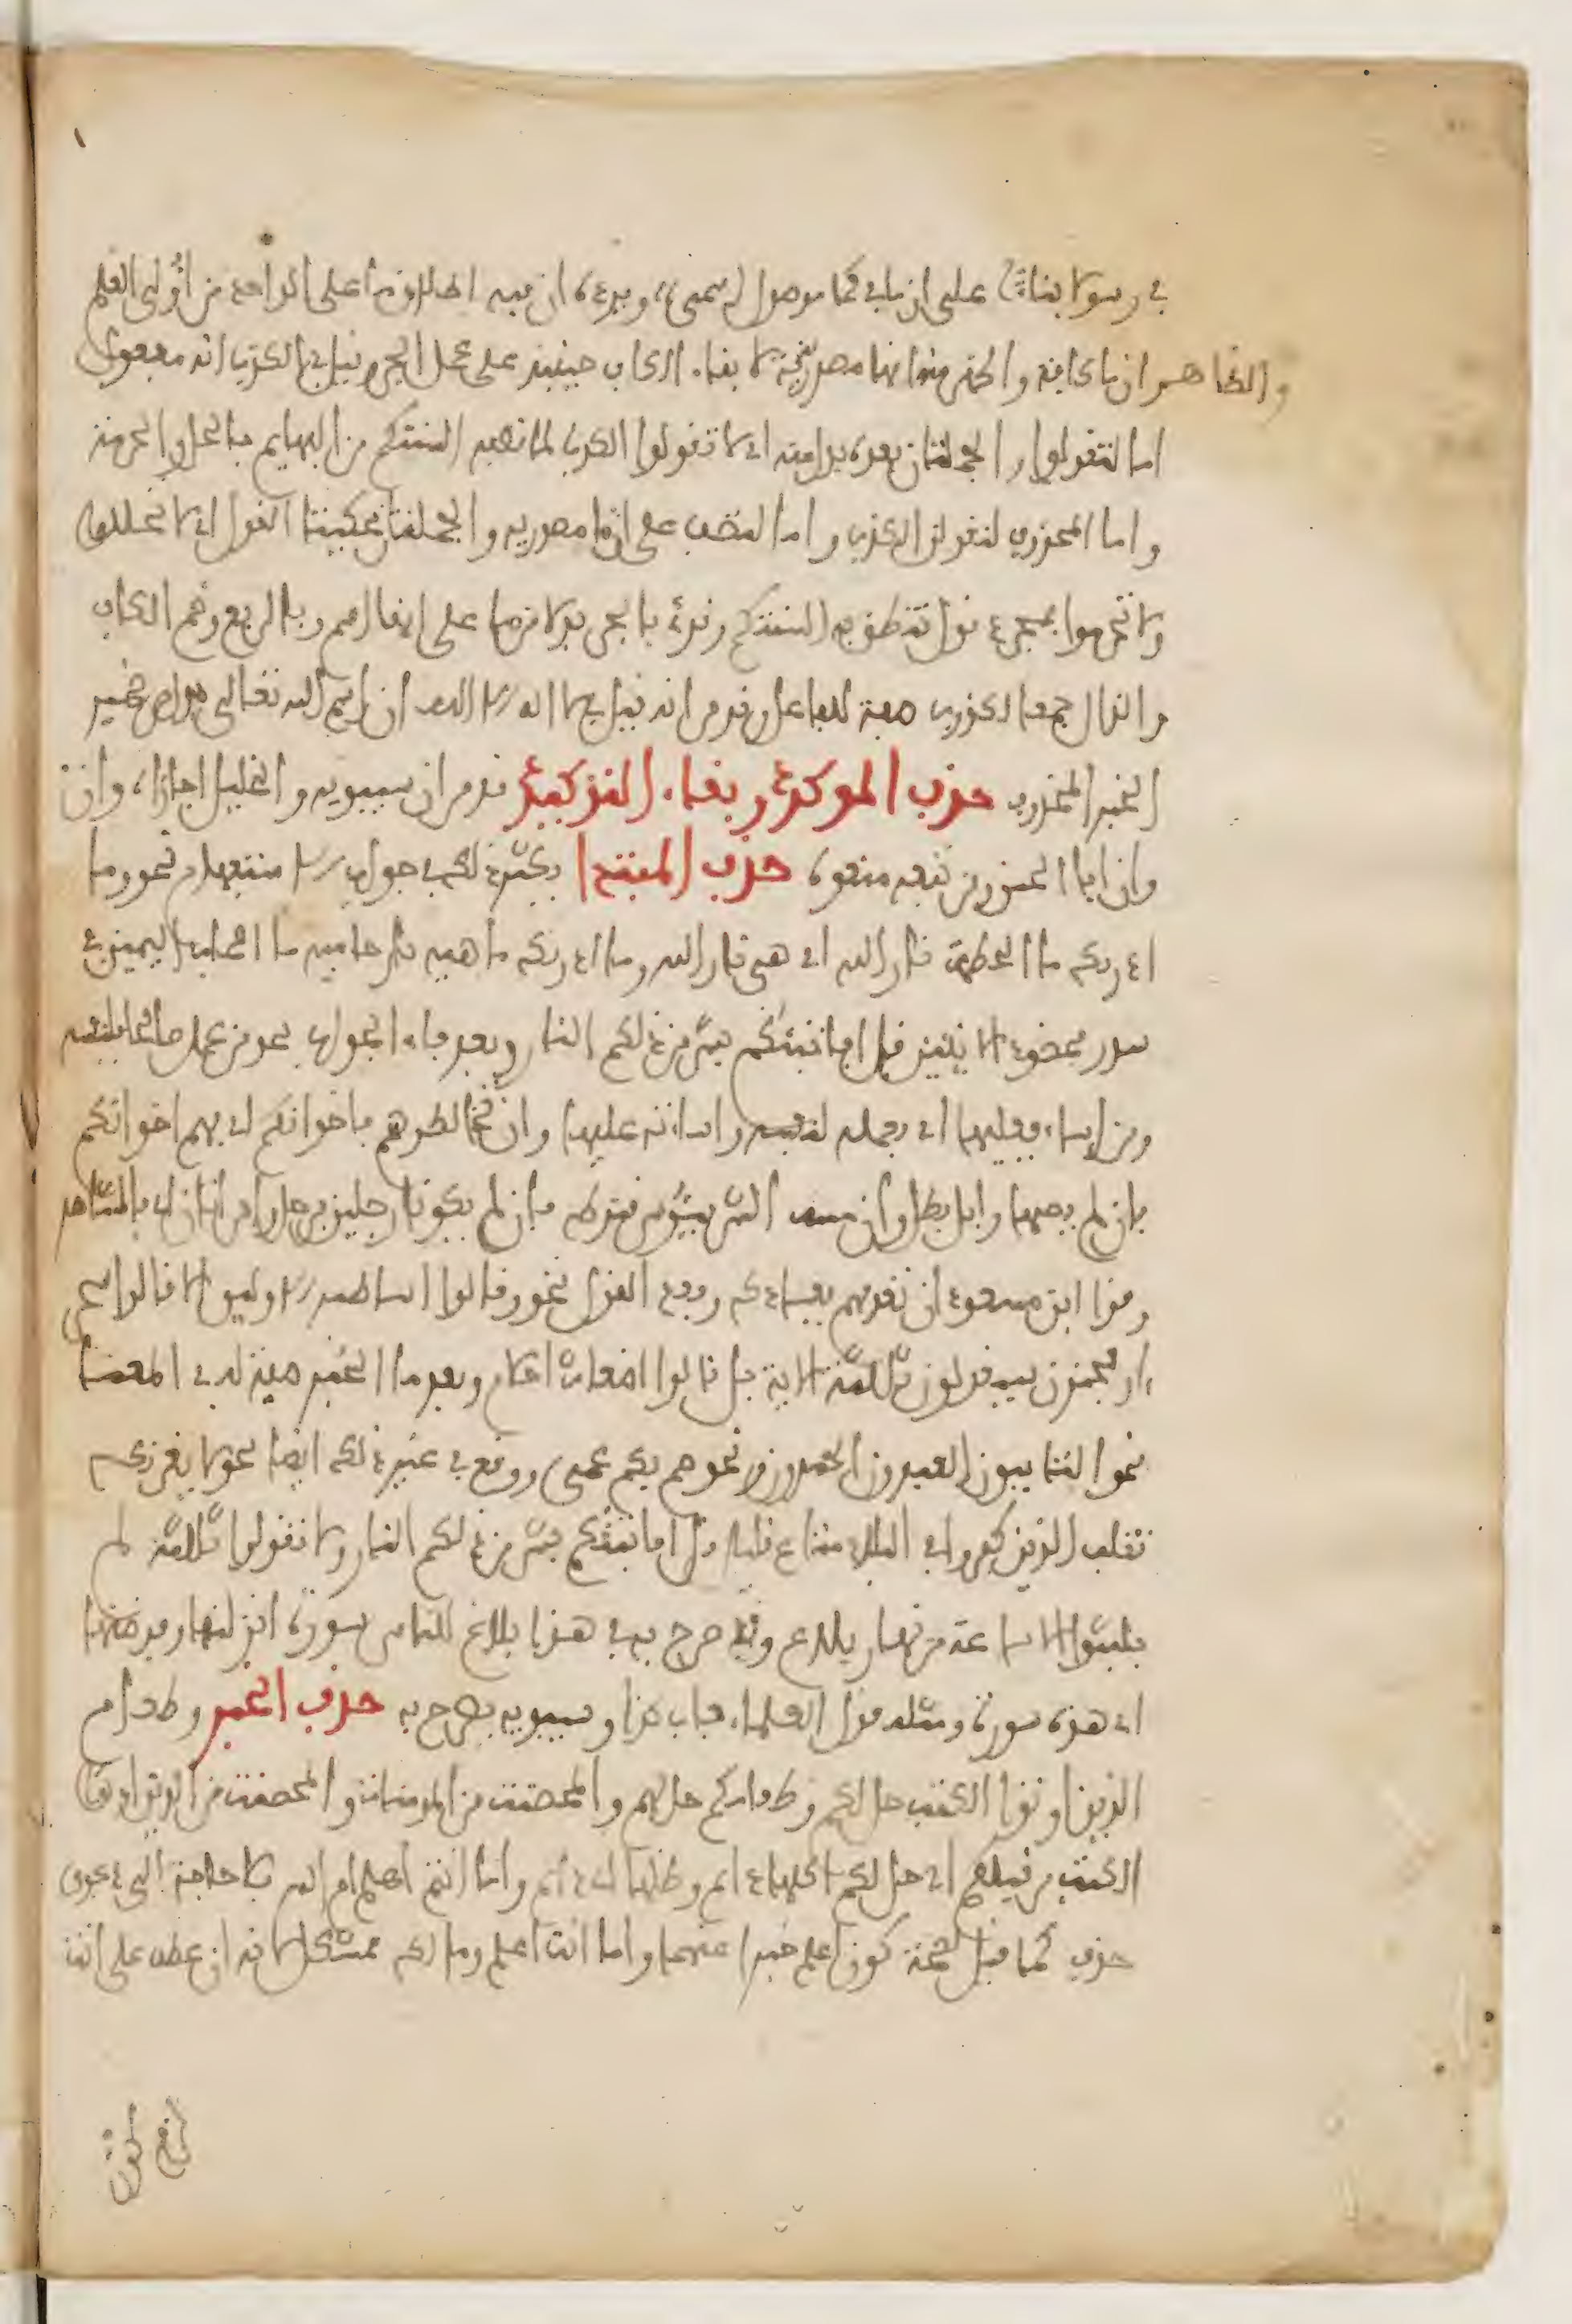 في رسولا بناء على ان ما في كما موصول اسمى ويرده ان فيه اطلاق ما على الواحد من اولى العلم
والظاهر ان ما كافة واظهر منه انها مصدرية لابقاء الكاف حينئذ على عمل الجر وقيل في الكذب انه مفعول
اما لتقولوا والجملتان بعده بدل منه اي لا تقولوا الكذب لما تصفه السنتكم من البهايم بالحل والحرمة
واما المحذوف لتقولوا الكذب واما لتصف على ان ما مصدرية والجملتان محكيتا القول اي لا تحللوا
ولا تحرموا بمجرد قول تنطق به السنتكم وقرئ بالجر بدلا من ما على انها اسم وبالرفع وضم الكاف
والذال جمعا لكذوب صفة للفاعل وقد مر انه قيل في لا اله الا الله ان اسم الله تعالى بدل من ضمير
الخبر المحذوف حذف الموكد وبقاء التوكيد قد مر ان سيبويه والخليل اجازاه وان
وان ابا الحسن ومن تبعه منعوه حذف المبتدا يكثر ذلك في جواب الاستفهام نحو وما
ادريك ما الحطمة نار الله اي هي نار الله وما ادريك ما هيه نار حامية ما اصحاب اليمين في
سدر مخضود الايتين قل افانبئكم بشر من ذلكم النار وبعد فاء الجواب نحو من عمل صالحا فلنفسه
ومن اساء فعليها اي فعمله لنفسه واساءته عليها وان تخالطوهم فاخوانكم اي فهم اخوانكم
فان لم يصبها وابل فطل وان مسه الشر فيئوس قنوط فان لم يكونا رجلين فرجل وامراتان اي فالشاهد
وقرا ابن مسعود ان تعذبهم فعبادك وبعد القول نحو وقالوا اساطير الاولين الا قالوا سحر
او مجنون سيقولون ثلثة الاية بل قالوا اضغاث احلام وبعد ما الخبر صفة له في المعنى
نحو التايبون العبدون الحمدون ونحو صم بكم عمى ووقع في غير ذلك ايضا نحو لا يغرنك
تقلب الذين كفروا في البلد متاع قليل قل افانبئكم بشر من ذلكم النار ولا تقولوا ثلثة لم
يلبثوا الا ساعة من نهار بلاغ وقد صرح به في هذا بلاغ للناس سورة انزلنها وفرضنها
اي هذه سورة ومثله قول العلماء باب كذا وسيبويه يصرح به حذف الخبر وطعام
الذين اوتوا الكتب حل لكم وطعامكم حل لهم والمحصنت من المومنات والمحصنت من الذين اوتوا
الكتب من قبلكم اي حل لكم اكلها دايم وظلها اي دايم واما انتم اعلم ام الله فلا حاجة الى دعوى
حذف كما قيل لصحة كون اعلم خبرا عنهما واما انت اعلم وما لك فمشكل لانه ان عطف على انت